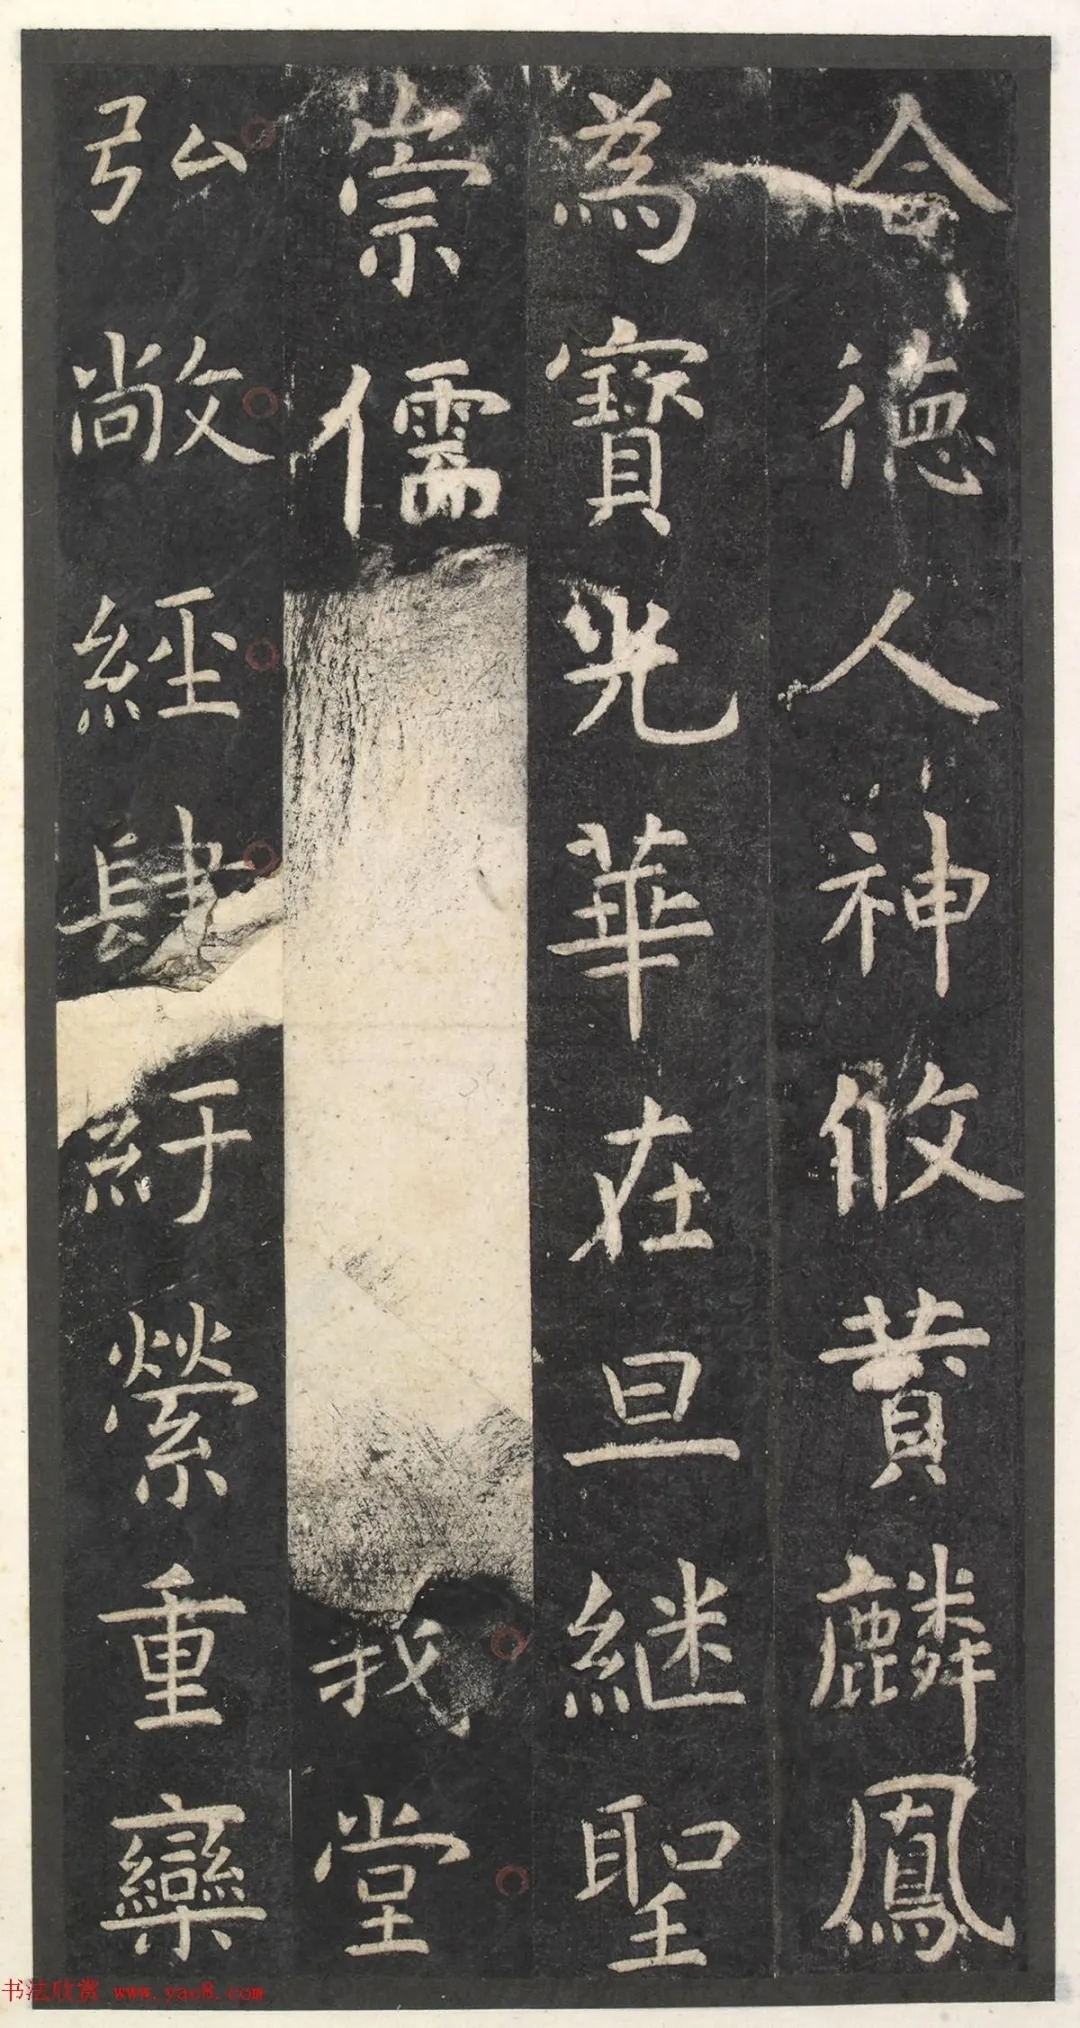 合德人神攸贊麟鳳
為寶光華在旦継聖
崇儒我堂
弘敞經肆紆縈重欒
书法欣赏 www.yac8.com